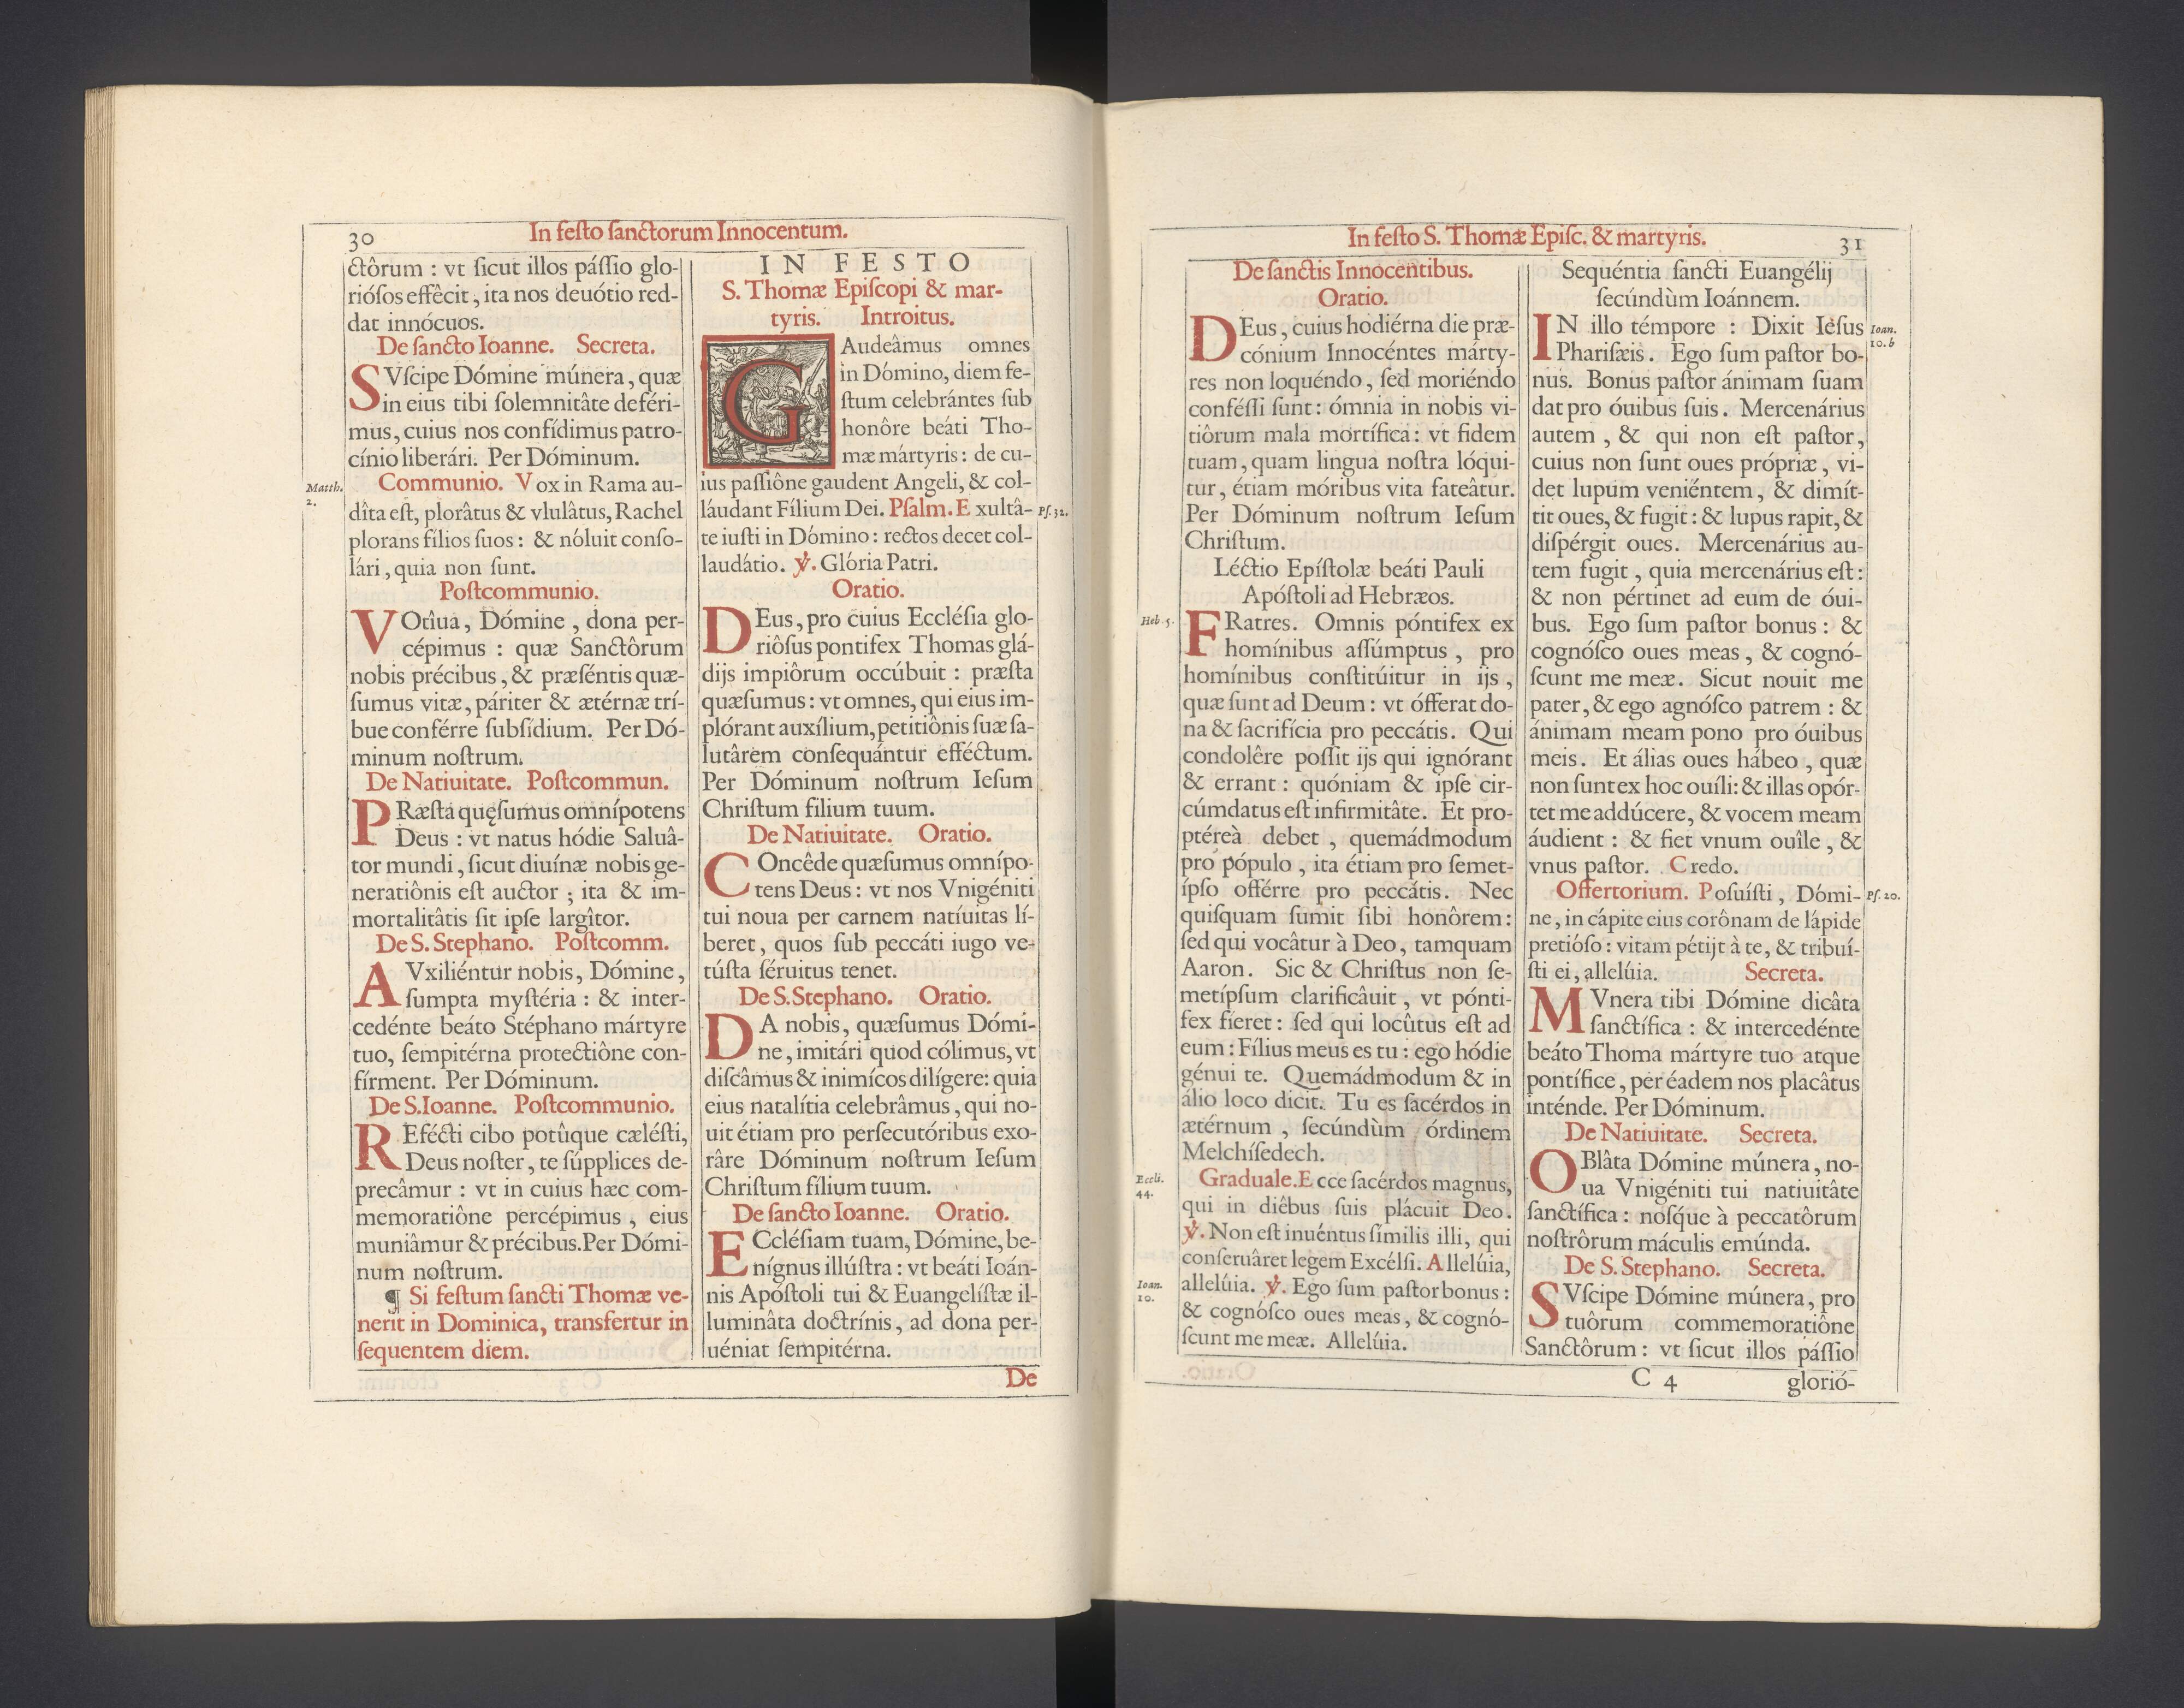 30
In festo sanctorum Innocentum.
ctôrum : vt sicut illos pássio glo-
riósos effêcit, ita nos deuótio red-
dat innócuos.
De sancto Ioanne. Secreta.
SVscipe Dómine múnera, quæ
in eius tibi solemnitâte deféri-
mus, cuius nos confídimus patro-
cínio liberári. Per Dóminum.
Matth.
2.
Communio. Vox in Rama au-
dîta est, plorâtus & vlulâtus, Rachel
plorans fílios suos : & nóluit conso-
lári, quia non sunt.
Postcommunio.
VOtîua, Dómine, dona per-
cépimus : quæ Sanctôrum
nobis précibus, & præséntis quæ-
sumus vitæ, páriter & ætérnæ trí-
bue conférre subsídium. Per Dó-
minum nostrum.
De Natiuitate. Postcommun.
PRæsta quęsumus omnípotens
Deus : vt natus hódie Saluâ-
tor mundi, sicut diuínæ nobis ge-
neratiônis est auctor ; ita & im-
mortalitâtis sit ipse largîtor.
De S. Stephano. Postcomm.
AVxiliéntur nobis, Dómine,
sumpta mystéria : & inter-
cedénte beáto Stéphano mártyre
tuo, sempitérna protectiône con-
fírment. Per Dóminum.
De S. Ioanne. Postcommunio.
REfécti cibo potûque cælésti,
Deus noster, te súpplices de-
precâmur : vt in cuius hæc com-
memoratiône percépimus, eius
muniâmur & précibus. Per Dómi-
num nostrum.
¶ Si festum sancti Thomæ ve-
nerit in Dominica, transfertur in
sequentem diem.
IN FESTO
S. Thomæ Episcopi & mar-
tyris. Introitus.
GAudeâmus omnes
in Dómino, diem fe-
stum celebrántes sub
honôre beáti Tho-
mæ mártyris : de cu-
ius passiône gaudent Angeli, & col-
láudant Fílium Dei. Psalm. Exultâ-
Ps. 32.
te iusti in Dómino : rectos decet col-
laudátio. ℣. Glória Patri.
Oratio.
DEus, pro cuius Ecclésia glo-
riôsus pontifex Thomas glá-
dijs impiôrum occúbuit : præsta
quæsumus : vt omnes, qui eius im-
plórant auxílium, petitiônis suæ sa-
lutârem consequántur efféctum.
Per Dóminum nostrum Iesum
Christum filium tuum.
De Natiuitate. Oratio.
COncêde quæsumus omnípo-
tens Deus : vt nos Vnigéniti
tui noua per carnem natíuitas lí-
beret, quos sub peccáti iugo ve-
tústa séruitus tenet.
De S. Stephano. Oratio.
DA nobis, quæsumus Dómi-
ne, imitári quod cólimus, vt
discâmus & inimícos dilígere: quia
eius natalítia celebrâmus, qui no-
uit étiam pro persecutóribus exo-
râre Dóminum nostrum Iesum
Christum fílium tuum.
De sancto Ioanne. Oratio.
ECclésiam tuam, Dómine, be-
nígnus illústra : vt beáti Ioán-
nis Apóstoli tui & Euangelístæ il-
luminâta doctrínis, ad dona per-
uéniat sempitérna.
De
In festo S. Thomæ Episc. & martyris.
31
De sanctis Innocentibus.
Oratio.
DEus, cuius hodiérna die præ-
cónium Innocéntes márty-
res non loquéndo, sed moriéndo
conféssi sunt : ómnia in nobis vi-
tiôrum mala mortífica : vt fidem
tuam, quam lingua nostra lóqui-
tur, étiam móribus vita fateâtur.
Per Dóminum nostrum Iesum
Christum.
Léctio Epístolæ beáti Pauli
Apóstoli ad Hebræos.
Heb. 5.
FRatres. Omnis póntifex ex
homínibus assúmptus, pro
homínibus constitúitur in ijs,
quæ sunt ad Deum : vt ófferat do-
na & sacrifícia pro peccátis. Qui
condolêre possit ijs qui ignórant
& errant : quóniam & ipse cir-
cúmdatus est infirmitâte. Et pro-
ptéreà debet, quemádmodum
pro pópulo, ita étiam pro semet-
ípso offérre pro peccátis. Nec
quisquam sumit sibi honôrem:
sed qui vocâtur à Deo, tamquam
Aaron. Sic & Christus non se-
metípsum clarificâuit, vt pónti-
fex fieret : sed qui locûtus est ad
eum : Fílius meus es tu : ego hódie
génui te. Quemádmodum & in
álio loco dicit. Tu es sacérdos in
ætérnum, secúndùm órdinem
Melchísedech.
Eccli.
44.
Graduale. Ecce sacérdos magnus,
qui in diêbus suis plácuit Deo.
℣. Non est inuéntus símilis illi, qui
conseruâret legem Excélsi. Allelúia,
Ioan.
10.
allelúia. ℣. Ego sum pastor bonus :
& cognósco oues meas, & cognó-
scunt me meæ. Allelúia.
Sequéntia sancti Euangélij
secúndùm Ioánnem.
Ioan.
10.b
IN illo témpore : Dixit Iesus
Pharisæis. Ego sum pastor bo-
nus. Bonus pastor ánimam suam
dat pro óuibus suis. Mercenárius
autem, & qui non est pastor,
cuius non sunt oues própriæ, vi-
det lupum veniéntem, & dimít-
tit oues, & fugit : & lupus rapit, &
dispérgit oues. Mercenárius au-
tem fugit, quia mercenárius est :
& non pértinet ad eum de óui-
bus. Ego sum pastor bonus : &
cognósco oues meas, & cognó-
scunt me meæ. Sicut nouit me
pater, & ego agnósco patrem : &
ánimam meam pono pro óuibus
meis. Et álias oues hábeo, quæ
non sunt ex hoc ouíli: & illas opór-
tet me addúcere, & vocem meam
áudient : & fiet vnum ouîle, &
vnus pastor. Credo.
Offertorium. Posuísti, Dómi-
Ps. 20.
ne, in cápite eius corônam de lápide
pretióso : vitam pétijt à te, & tribuí-
sti ei, allelúia. Secreta.
MVnera tibi Dómine dicâta
sanctífica : & intercedénte
beáto Thoma mártyre tuo atque
pontífice, per éadem nos placâtus
inténde. Per Dóminum.
De Natiuitate. Secreta.
OBlâta Dómine múnera, no-
ua Vnigéniti tui natiuitâte
sanctífica : nosq́ue à peccatôrum
nostrôrum máculis emúnda.
De S. Stephano. Secreta.
SVscipe Dómine múnera, pro
tuôrum commemoratiône
Sanctôrum : vt sicut illos pássio
C 4
glorió-